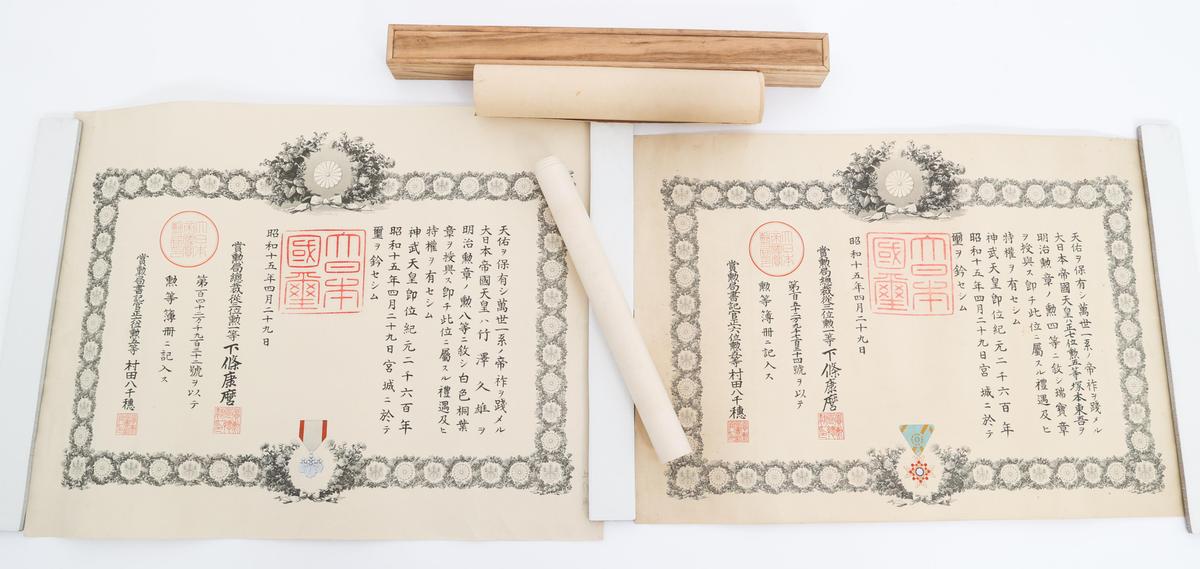 天佑ヲ保有シ萬世一系ノ帝祚ヲ踐メル
大日本帝國天皇ハ竹澤久雄ヲ
明治勲章ノ勲八等ニ敘シ白色桐葉
章ヲ授與ス卽チ此位ニ屬スル禮遇及ヒ
特權ヲ有セシム
神武天皇卽位紀元二千六百年
昭和十五年四月二十九日宮城ニ於テ
璽ヲ鈐セシム
大日本國璽
昭和十五年四月二十九日
賞勲局總裁從三位勲一等下條康麿
第百四十二万千九百三十二號ヲ以テ
勲等簿册ニ記入ス
賞勲局書記官正六位勲五等村田八千穗
天佑ヲ保有シ萬世一系ノ帝祚ヲ踐メル
大日本帝國天皇ハ正七位勲五等塚本東吾ヲ
明治勲章ノ勲四等ニ敘シ瑞寶章
ヲ授與ス卽チ此位ニ屬スル禮遇及ヒ
特權ヲ有セシム
神武天皇卽位紀元二千六百年
昭和十五年四月二十九日宮城ニ於テ
璽ヲ鈐セシム
大日本國璽
昭和十五年四月二十九日
賞勲局總裁從三位勲一等下條康麿
勲等簿册ニ記入ス
賞勲局書記官正六位勲五等村田八千穗